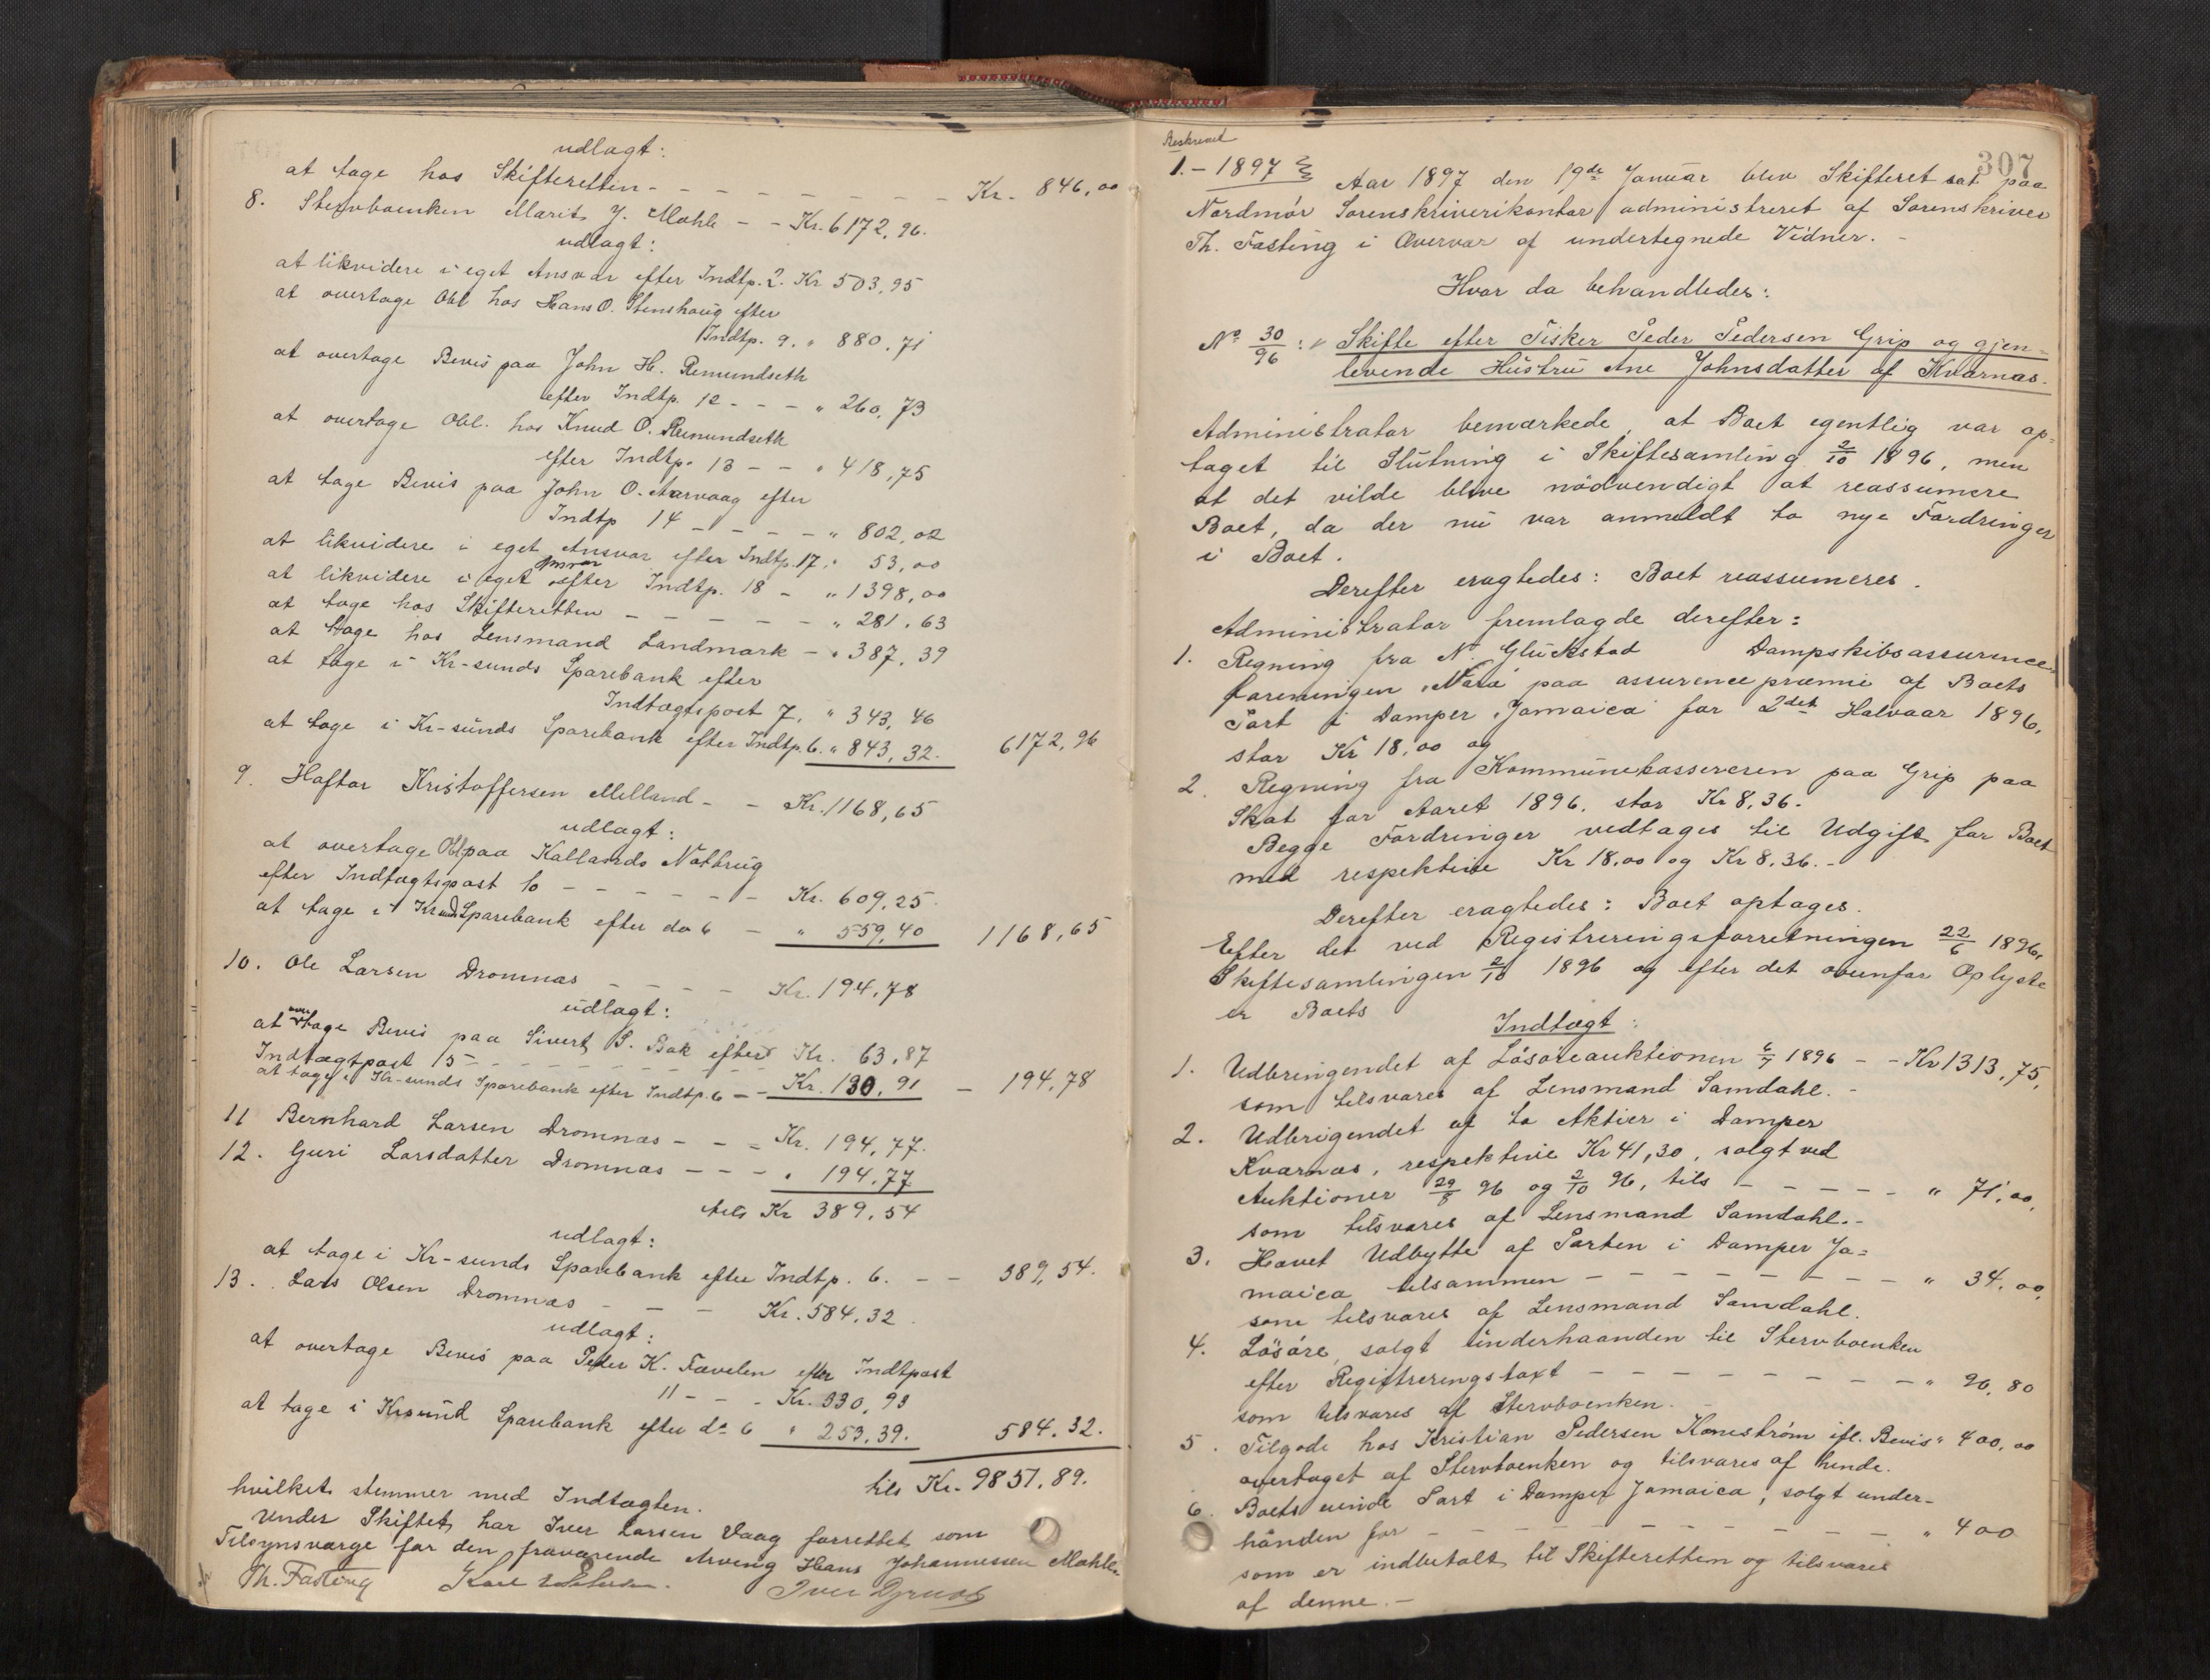 udlagt:
at tage hos Skifteretten - - - - - - - - Kr. 846,00
8. Stervboenken Marit J. Mohle - - Kr. 6172,96.
udlagt:
at likvidere i eget Ansvar efter Indtp. 2. Kr 503,95
at overtage Obl. hos Hans O. Stenshoug efter
Indtp. 9. " 880,71
at overtage Bevis paa John H. Remundseth
efter Indtp. 12 - - - " 260,73
at overtage Obl. hos Knud O. Remundseth
efter Indtp. 13 - - " 418,75
at tage Bevis paa John O. Aarvaag efter
Indtp 14 - - - - - " 802,02
at likvidere i eget Ansvar efter Indtp. 17. " 53,00
at likvidere i eget Ansvar efter Indtp. 18 - " 1398,00
at tage hos Skifteretten - - - - - " 281,63
at tage hos Lensmand Landmark - " 387,39
at tage i Kr-sunds Sparebank efter
Indtægtspost 7. " 343,46
at tage i Kr-sunds Sparebank efter Indtp. 6. " 843,32. 6172,96
9. Haftor Kristoffersen Melland - - Kr. 1168,65
udlagt:
at overtage Obl paa Kallands Notbrug
efter Indtægtspost 10 - - - - - - Kr. 609,25.
at tage i Kr sunds Sparebank efter do 6 - " 559,40 1168,65
10. Ole Larsen Dromnæs - - - - Kr. 194,78
udlagt:
at overtage Bevis paa Sivert S. Bak efter Kr. 63,87
Indtægtpost 15 - - - - - - - -
at tage i Kr-sunds Sparebank efter Indtp. 6 - - Kr. 130,91 - 194,78
11 Bernhard Larsen Dromnæs - - - Kr. 194,77.
12. Guri Larsdatter Dromnæs - - - " 194,77
tils Kr 389,54
udlagt:
at tage i Kr-sunds Sparebank efter Indtp. 6. - - 389,54.
13. Lars Olsen Dromnæs - - - Kr. 584,32.
udlagt:
at overtage Bevis paa Peder K. Tævelen efter Indtpost
11 - - - Kr. 330,93
at tage i Krsund Sparebank efter do 6 " 253,39. 584,32.
tils Kr. 9851,89.
hvilket stemmer med Indtægten.
Under Skiftet har Iver Larsen Vaag forrettet som
Tilsynsværge for den fraværende Arving Hans Johannessen Mohle.
Th. Fasting Karl Iver
Beskrevet 307
1. - 1897 Aar 1897 den 19de Januar blev Skifteret sat paa
Nordmør Sorenskriverikontor administreret af Sorenskriver
Th. Fasting i Overvær af undertegnede Vidner. -
Hvor da behandledes:
No 30/96: " Skifte efter Fisker Peder Pedersen Grip og gjen-
levende Hustru Ane Johnsdatter af Kvarnæs.
Administrator bemærkede, at Boet egentlig var op-
taget til Slutning i Skiftesamling 2/10 1896, men
at det vilde blive nødvendigt at reassumere
Boet, da der nu var anmeldt to nye Fordringer
i Boet.
Derefter eragtedes: Boet reassumeres.
Administrator fremlagde derefter:
1. Regning fra N. Gluckstad Dampskibsassurence-
foreningen "Nora" paa assurencepræmie af Boets
Part i Damper "Jamaica" for 2det Halvaar 1896,
stor Kr 18,00 og
2. Regning fra Kommunekassereren paa Grip paa
Skat for Aaret 1896, stor Kr 8,36.
Begge Fordringer vedtages til Udgift for Boet
med respektive Kr 18,00 og Kr 8,36. -
Derefter eragtedes: Boet optages.
Efter det ved Registreringsforretningen 22/6 1896,
Skiftesamlingen 2/10 1896 og efter det ovenfor Oplyste
er Boets
Indtægt:
1. Udbringendet af Løsøreauktionen 6/7 1896 - - Kr 1313,75,
som tilsvares af Lensmand Samdahl. -
2. Udbrigendet af to Aktier i Damper
Kvarnæs, respektive Kr 41,30, solgt ved
Auktioner 29/8 96 og 2/10 96, tils - - - - - " 71,00,
som tilsvares af Lensmand Samdahl. -
3. Hævet Udbytte af Parten i Damper Ja-
maica tilsammen - - - - - - - - " 34,00,
som tilsvares af Lensmand Samdahl.
4. Løsøre, solgt underhaanden til Stervboenken
efter Registreringstaxt - - - - - - - - - " 96,80
som tilsvares af Stervboenken.
5. Tilgode hos Kristian Pedersen Konestrøm ifl. Bevis " 400,00
overtaget af Stervboenken og tilsvares af hende.
6. Boets eiende Part i Damper Jamaica, solgt under-
hånden for - - - - - - - - - - - " 400
som er indbetalt til Skifteretten og tilsvares
af denne. -